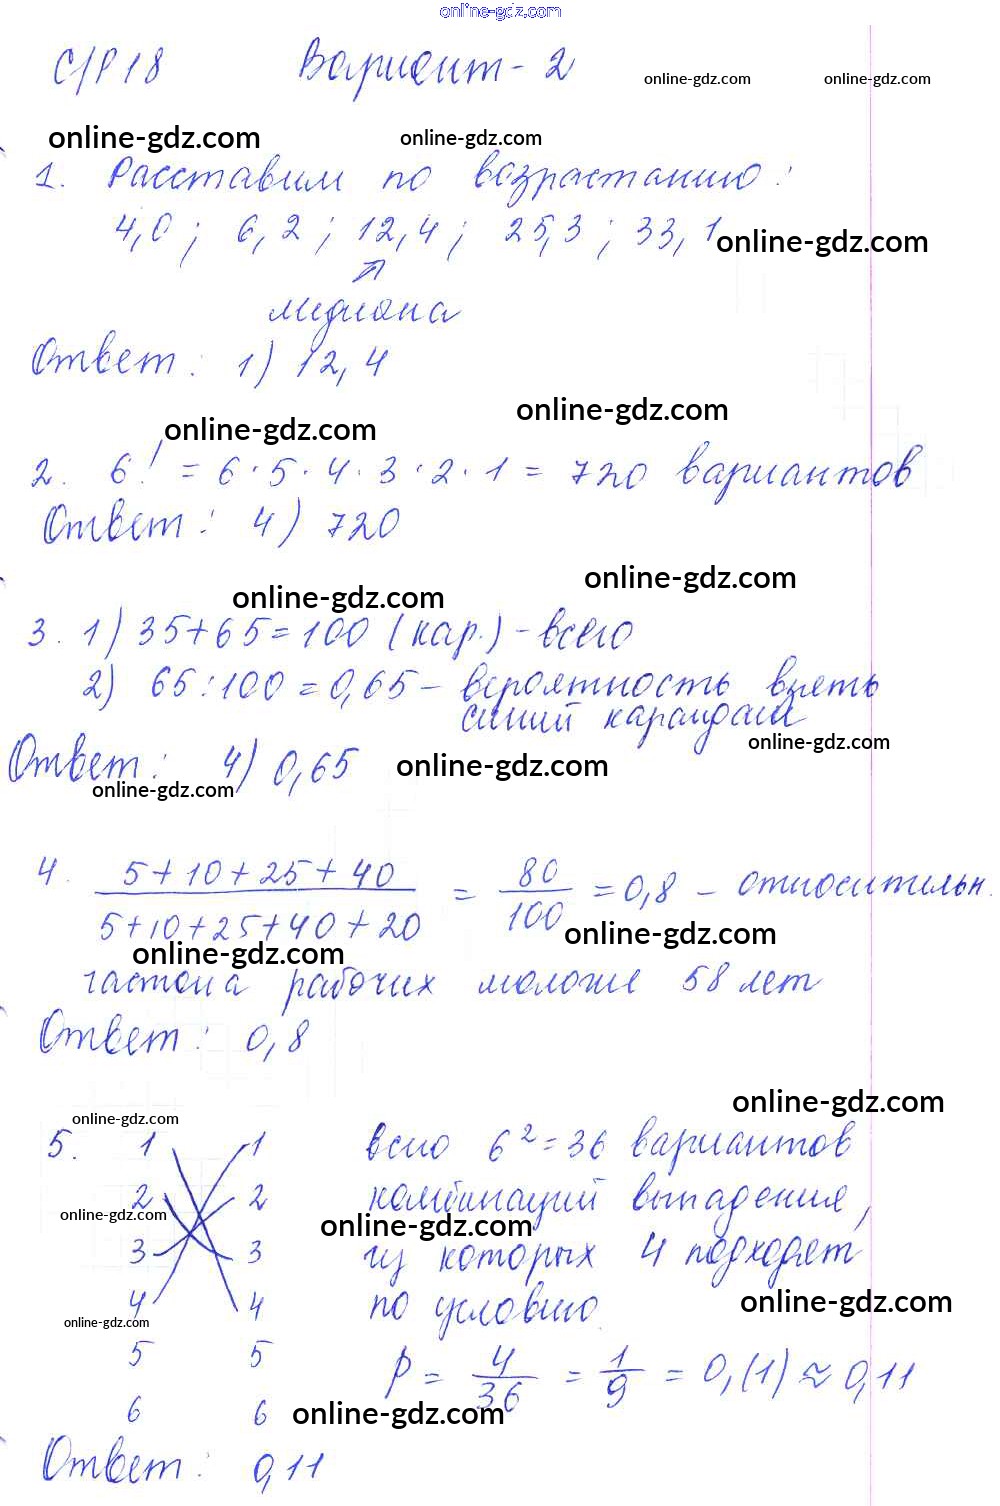 online-gdz.com
С/Р 18 Вариант - 2
online-gdz.com online-gdz.com
online-gdz.com online-gdz.com
1. Расставим по возрастанию:
4,0 ; 6,2 ; 12,4 ; 25,3 ; 33,1
online-gdz.com
медиана
Ответ: 1) 12,4
online-gdz.com
online-gdz.com
2. 6! = 6 · 5 · 4 · 3 · 2 · 1 = 720 вариантов
Ответ: 4) 720
online-gdz.com
online-gdz.com
3. 1) 35+65=100 (кар.) - всего
2) 65:100=0,65 - вероятность взять
синий карандаш
online-gdz.com
Ответ: 4) 0,65 online-gdz.com
online-gdz.com
4. 5+10+25+40 / 5+10+25+40+20 = 80/100 = 0,8 - относительн.
online-gdz.com
online-gdz.com
частота рабочих моложе 58 лет
Ответ: 0,8
online-gdz.com
online-gdz.com
5. 1 1 всего 6² = 36 вариантов
2 2 комбинаций выпадения,
online-gdz.com online-gdz.com
3 3 из которых 4 подходят
4 4 по условию
online-gdz.com
online-gdz.com
5 5 P = 4/36 = 1/9 = 0,(1) ≈ 0,11
6 6 online-gdz.com
Ответ: 0,11